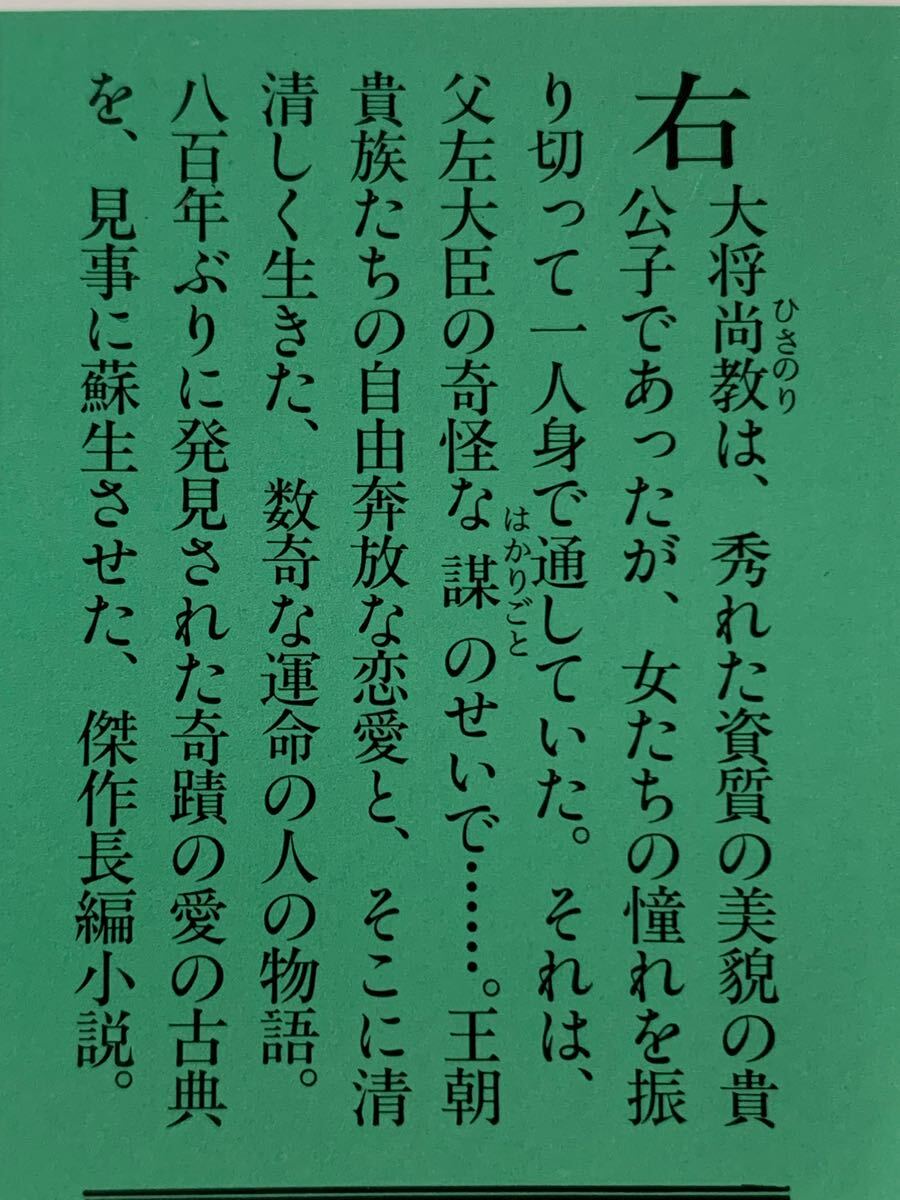 右大将尚教は、秀れた資質の美貌の貴
ひさのり
公子であったが、女たちの憧れを振
り切って一人身で通していた。それは、
父左大臣の奇怪な謀のせいで……。王朝
はかりごと
貴族たちの自由奔放な恋愛と、そこに清
清しく生きた、数奇な運命の人の物語。
八百年ぶりに発見された奇蹟の愛の古典
を、見事に蘇生させた、傑作長編小説。